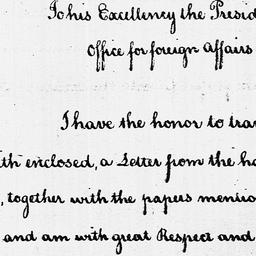 To his Excellency the Presid
Office for foreign Affairs
I have the honor to tra
ith enclosed, a Letter from the ho
, together with the papers mentio
and am with great Respect and